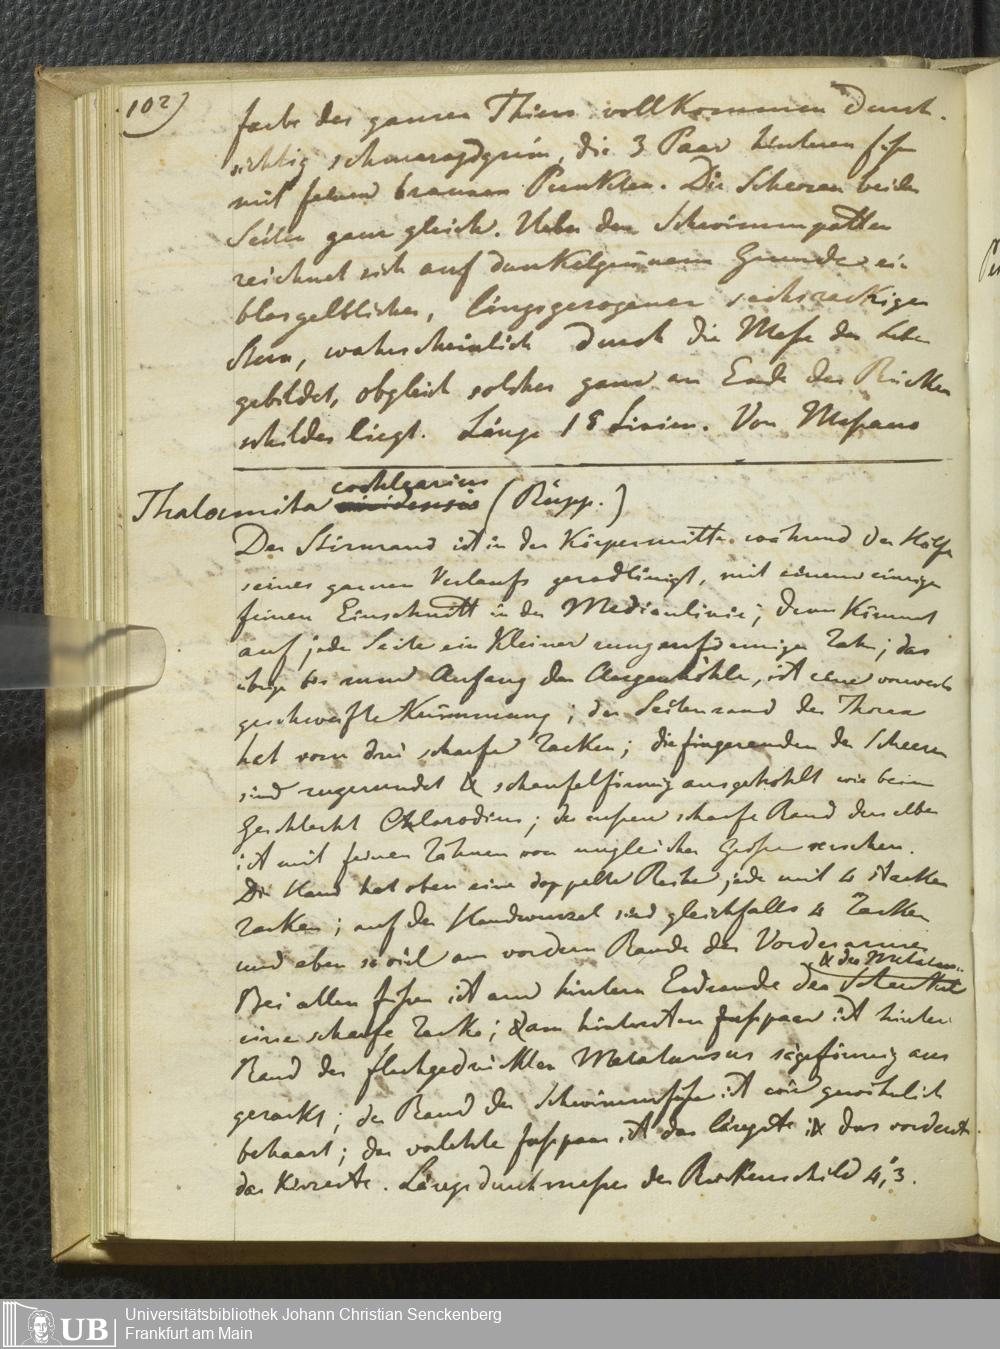 102)
farbe des ganzen Thiers vollkommen durch-
sichtig schmaragdgrün, die 3 Paar hinteren Füße
mit feinen braunen Punkten. Die Scheeren beider
Seiten ganz gleich. Ueber den Schwimmpatten
zeichnet sich auf dunkelgrünem Grunde ein
blasgelblicher, längsgezogener sechszackiger
Stern, wahrscheinlich durch die Maße der Leber
gebildet, obgleich solcher ganz am Ende des Rücken
schildes liegt. Länge 18 Linien. Von Maßaua
cochlearius
Thalamita (Rüpp.)
Der Stirnrand ist in der Körpermitte während der Hälfte
seines ganzen Verlaufs geradlinigt, mit einem einzigen
feinen Einschnitt in der Medianlinie; dann kömmt
auf jede Seite ein kleiner zungenförmiger Zahn; das
übrige bis zum Anfang der Augenhöhle, ist eine vorwerts
geschweifte Krümmung; der Seitenrand des Thorax
hat vorn drei scharfe Zacken; die fingerenden der Scheeren
sind zugerundet & schaufelförmig ausgehöhlt wie beim
Geschlecht Chlorodius; der scharfe Rand derselben
ist mit feinen Zähnen von ungleicher Große versehen.
Die Hand hat oben eine doppelte Reihe jede mit 4 starken
Zacken; auf der Handwurzel sind gleichfalls 4 Zacken
und eben so viel am vordern Rande des Vorderarmes
& des Metatarsus
Bei allen füßen ist am hintern Endrande des Schenkel
eine scharfe Zacke; & am hintersten fußpaar ist hinter
Rand des flachgedrückten Metatarsus sägeförmig aus
gezackt; der Rand der Schwimmfüße ist wie gewöhnlich
behaart; das vorletzte fußpaar ist das längste & das vorderste
das kürzeste. Längedurchmeßer des Rückenschild 4‚‴3.
Universitätsbibliothek Johann Christian Senckenberg
UB Frankfurt am Main